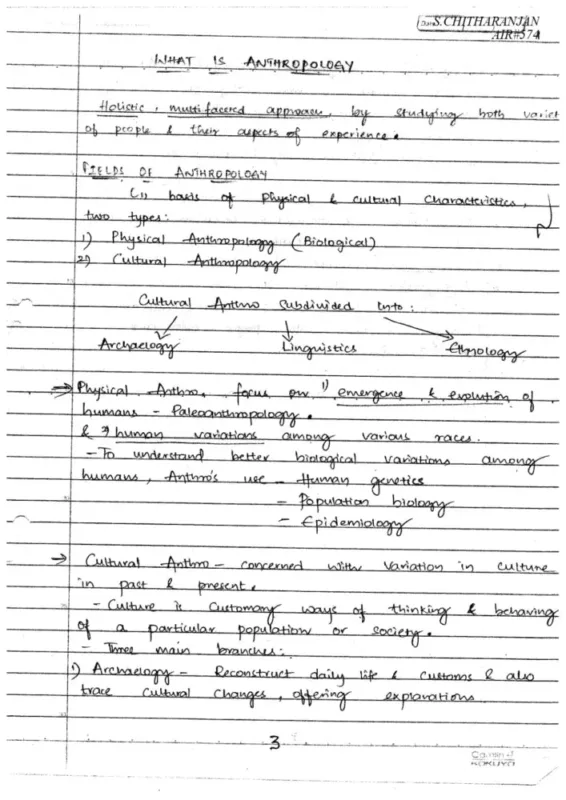 S.CHITHARANJAN
AIR#574
WHAT IS ANTHROPOLOGY
Holistic, multifacered approach, by studying both variet
of people & their aspects of experience.
FIELDS OF ANTHROPOLOGY
basis of physical & cultural characteristics,
two types:
1) Physical Anthropology (Biological)
2) Cultural Anthropology
Cultural Anthro subdivided into:
Archaelogy Linguistics Ethnology
⇒ Physical Anthro. focus on 1) emergence & evolution of
humans - Paleoanthropology.
& 2) human variations among various races.
- To understand better biological variations among
humans, Anthro's use - Human genetics
- Population biology
- Epidemiology
→ Cultural Anthro - concerned with variation in culture
in past & present.
- Culture is customary ways of thinking & behaving
of a particular population or society.
- Three main branches:
1) Archaelogy - Reconstruct daily life & customs & also
trace cultural changes, offering explanations.
3
KOKUYO